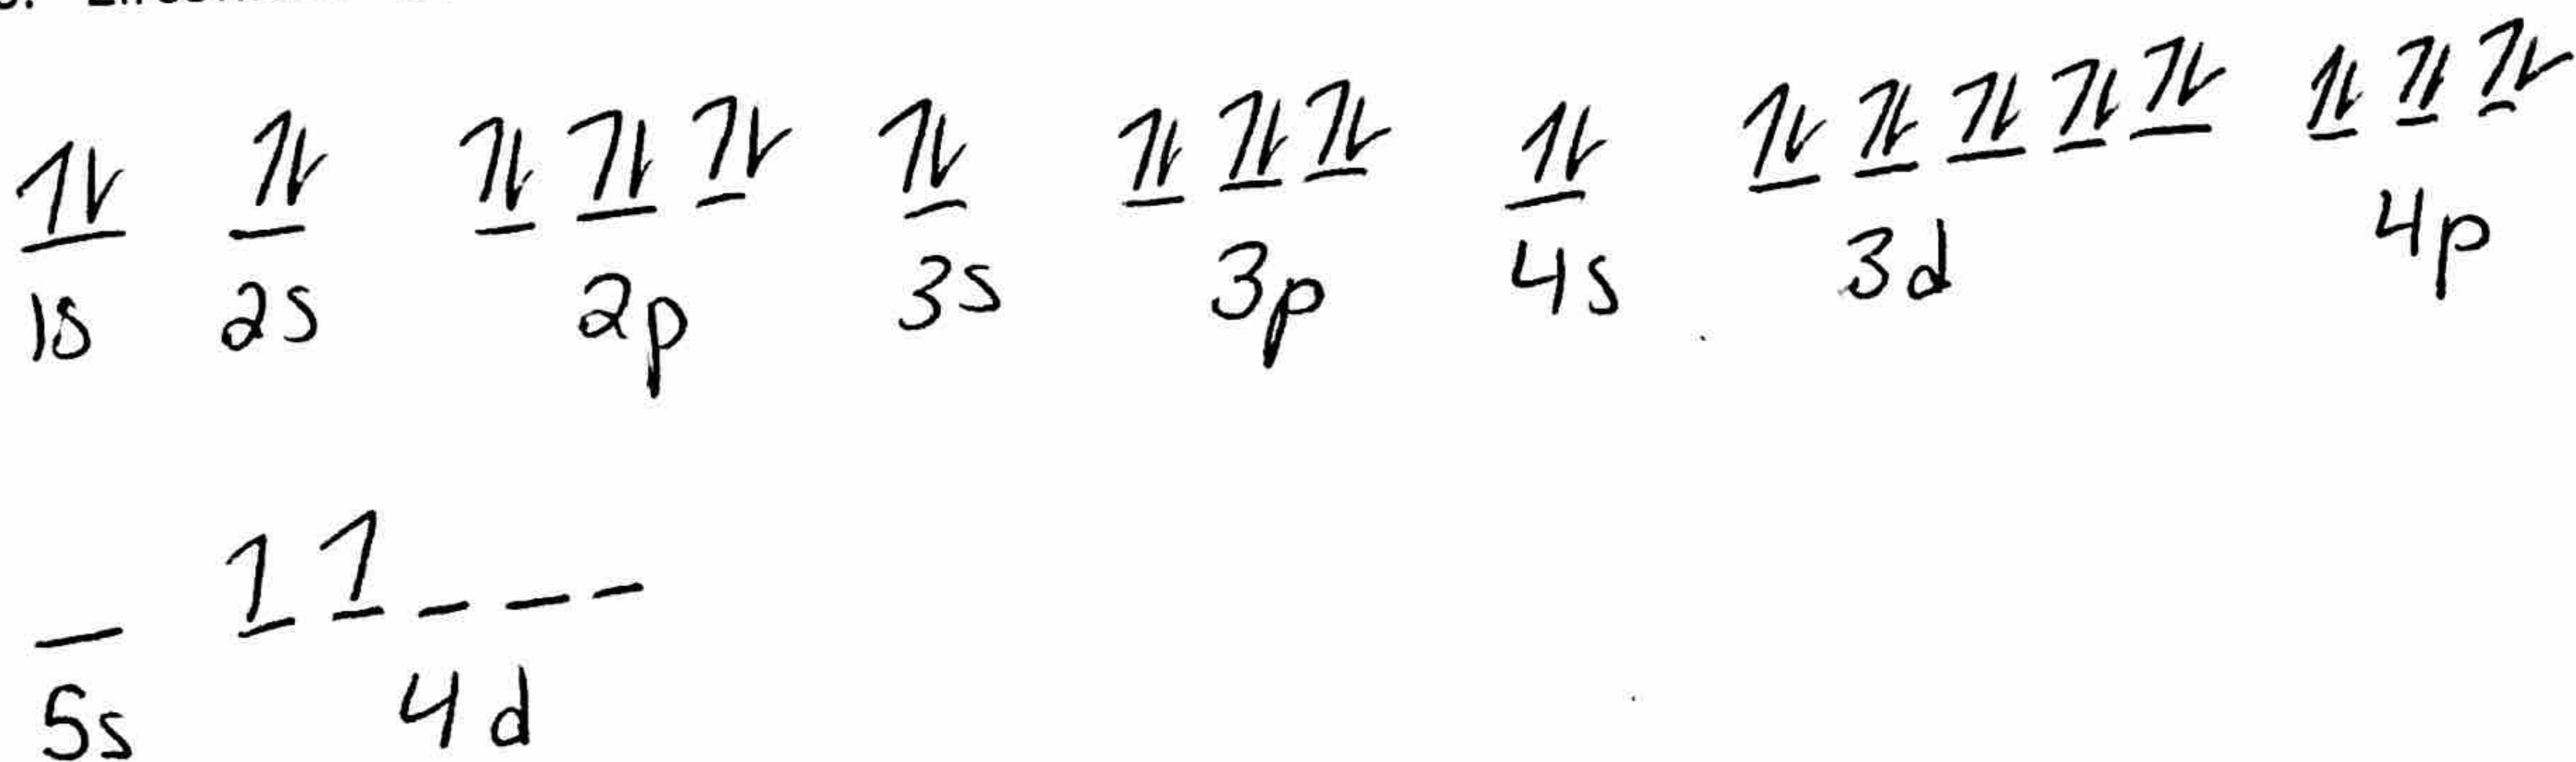 1s 2s 2p 3s 3p 4s 3d 4p
5s 4d